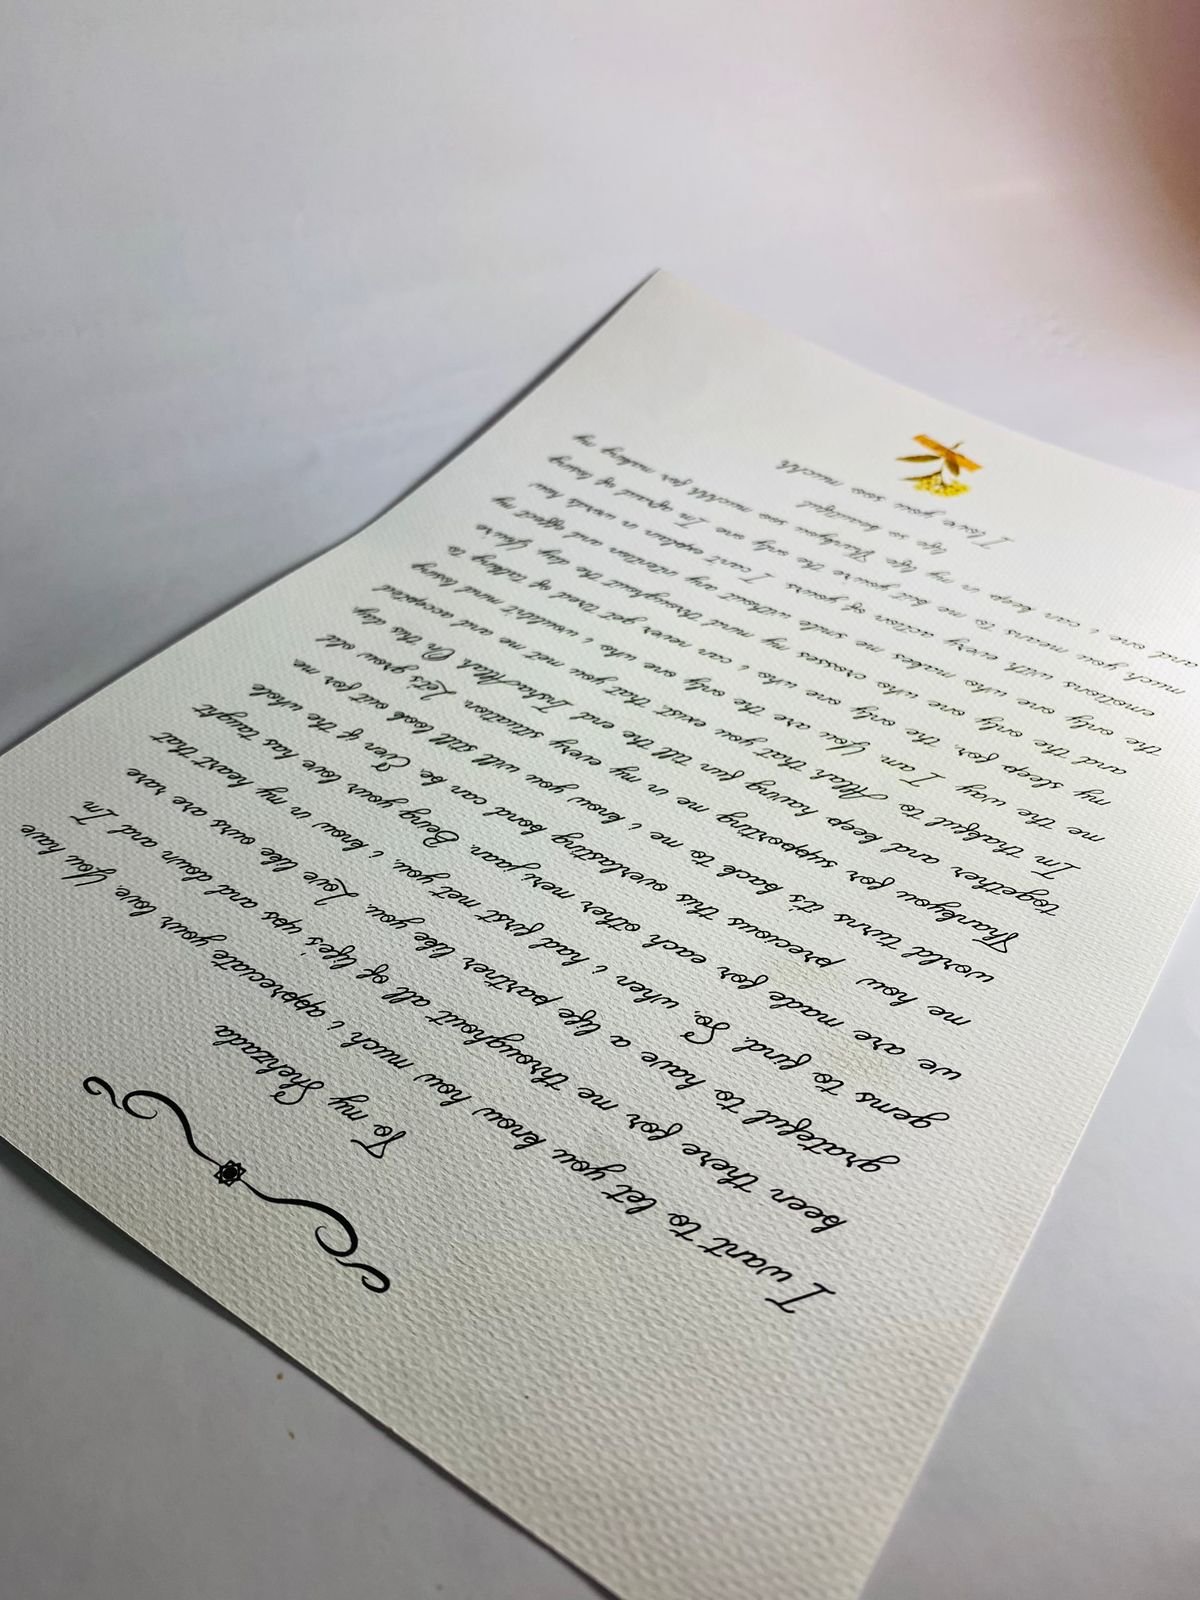 To my Shehzada
I want to let you know how much i appreciate your love. You have
been there for me throughout all of life's ups and down and I'm
grateful to have a life partner like you. Love like ours are rare
gems to find. So, when i had first met you, i know in my heart that
we are made for each other meri jaan. Being your love has taught
me how precious this everlasting bond can be. Even if the whole
world turns it's back to me i know you will still look out for me
Thankyou for supporting me in my every situation. Let's grow old
together and keep having fun till the end InshaAllah. On this day
I'm thakful to Allah that you exist, that you met me and accepted
me the way I am. You are the only one who i wouldn't mind losing
my sleep for, the only one who i can never get tired of talking to
and the only one who crosses my mind throughout the day. You're
the only one who makes me smile without any intention and effect my
emotions with every action of yours. I can't explain in words how
much you means to me but you're the only one I'm afraid of losing
and one i can keep in my life. Thankyou soo muchh for making my
life so beautiful.
I love you soo muchh